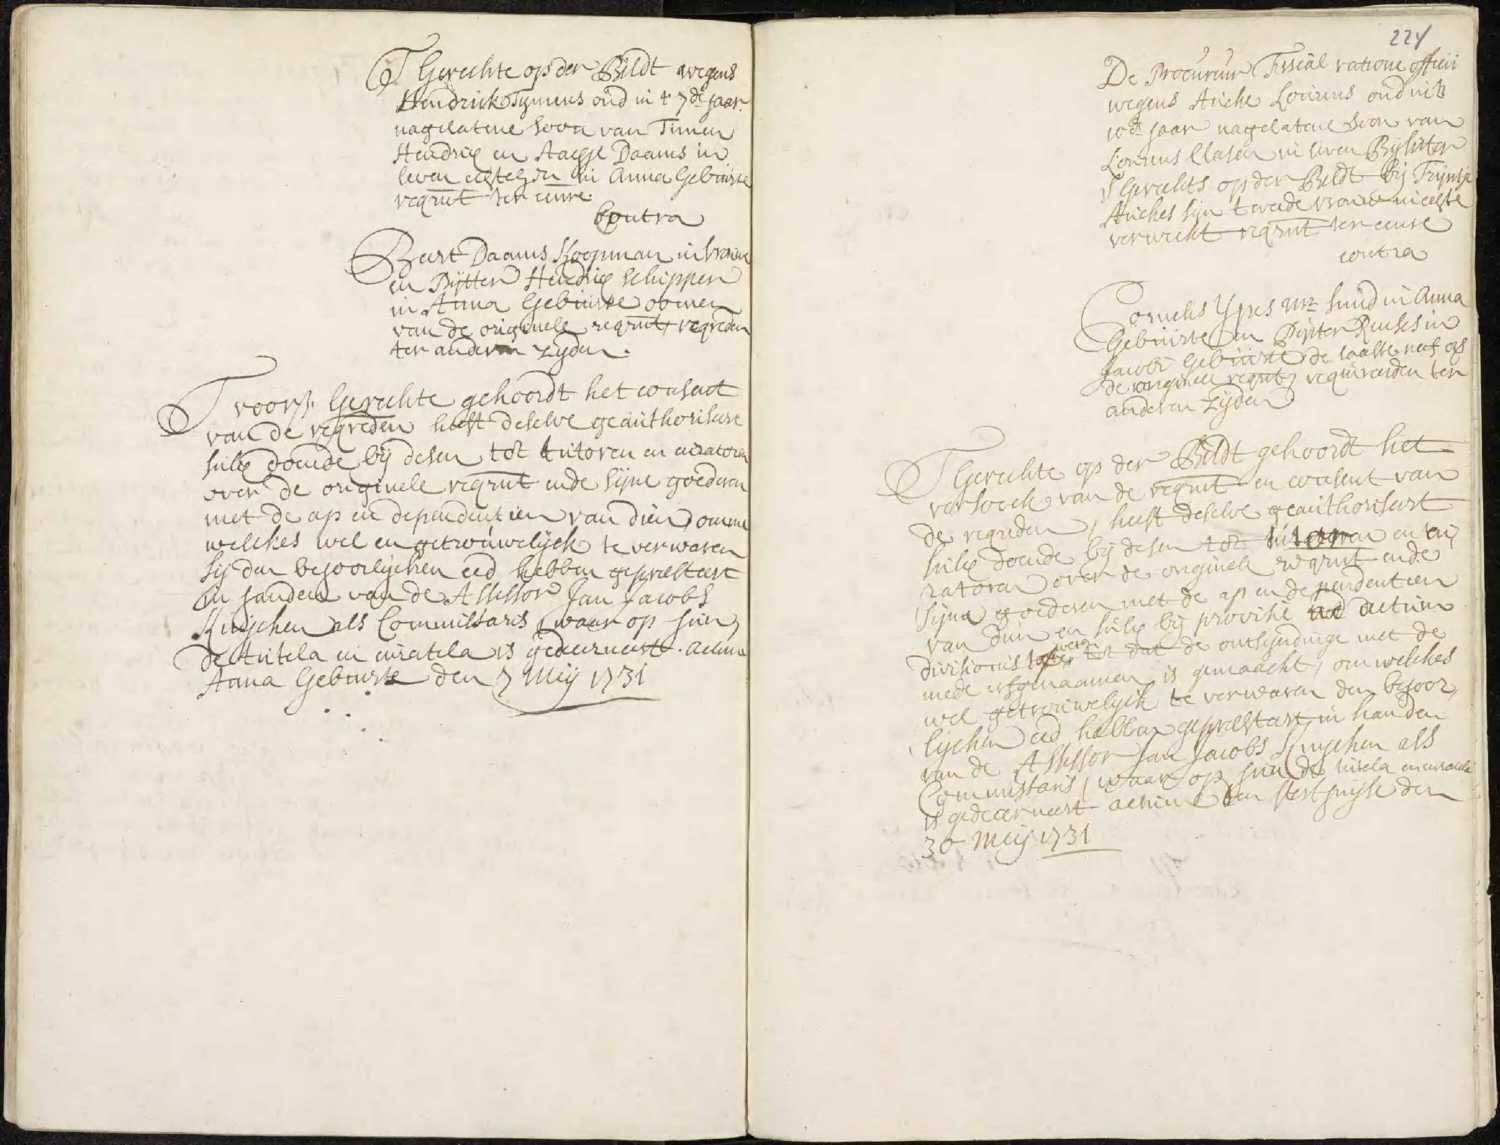 T Gerechte op der Bildt wegens
Hendrick Tymens oud in t 7de Jaar
nagelatene soon van Timen
Hendrix en Aaeje Daams in
leven egtel: in Anna Gebuirte
reqrnt ter eenre
Contra
Bart Daams Koopman in
en Pytter Hendrix schipper
in Anna Gebuirte omen
van de originele reqrnt, reqreden
ter anderen zyden.
T voors. Gerechte gehoordt het consent
van de reqreden heeft deselve geauthoriseert
sulx doende bij desen tot tutoren en curatoren
over de originele reqrnt ende syne goederen
met de ap en dependentien van dien, omme
welckes wel en getrouwelijck te verwaren
sij den behoorlijcken eed hebben gepraesteert
in handen van de Assessor Jan Jacobs
Kuijcken als Commissaris, waar op hun
de tutela en curatela is gedecerneert. actum
Anna Gebuirte den 7 Meij 1731
224
De Procureur Fiscael ratione officii
wegens Aucke Lourens oud in t
10de jaar nagelatene soon van
Lourens Clasen in leven Bysitter
s Gerechts op der Bildt bij Trijntje
Auckes syn tweede vrouw in echte
verweckt reqrnt ter eenre
contra
Cornelis Ypes mr: in Anna
Gebuirte en Pijter Rinses in
Jacobi Gebuirte de laatste neef
de originele reqrnt, requireerden ter
anderen zijden
T Gerechte op der Bildt gehoordt het
versoeck van de reqrnt en consent van
de reqreden, heeft deselve geauthoriseert
sulx doende bij desen tot tutoren en cu,
ratoren over de originele reqrnt ende
sijne goederen met de ap en dependentien
van dien en sulx bij provisie ad actum
divisionis tot dat de ontscheidinge met de
mede erfgenaamen is gemaackt, om welckes
wel getrouwelijck te verwaren den behoor,
lijcken eed hebben gepraesteert in handen
van de Assessor Jan Jacobs Kuijcken als
Commissaris, waar op hun de tutela en curatela
is gedecerneert actum den den
30 Meij 1731